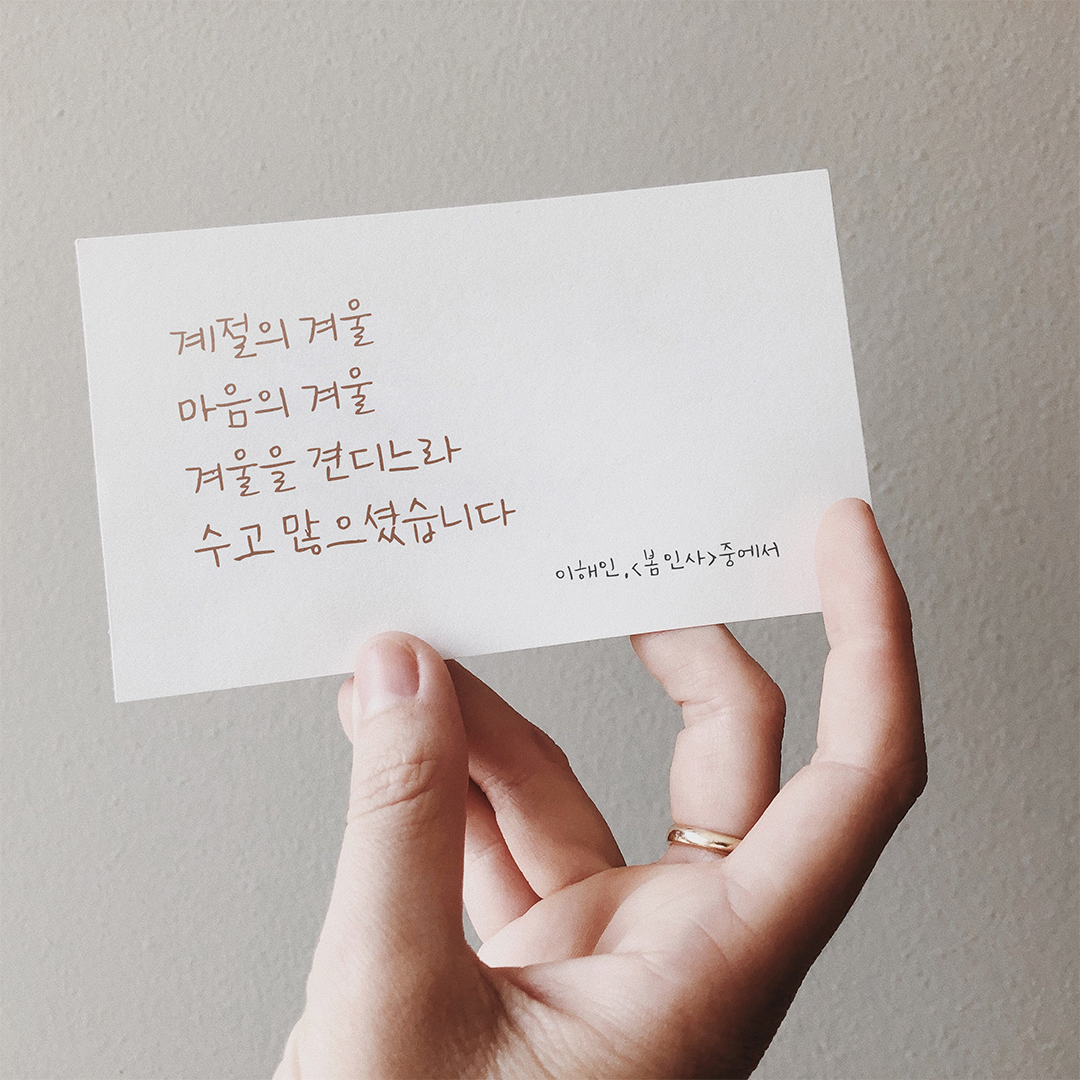 계절의 겨울
마음의 겨울
겨울을 견디느라
수고 많으셨습니다
이해인, <봄 인사> 중에서